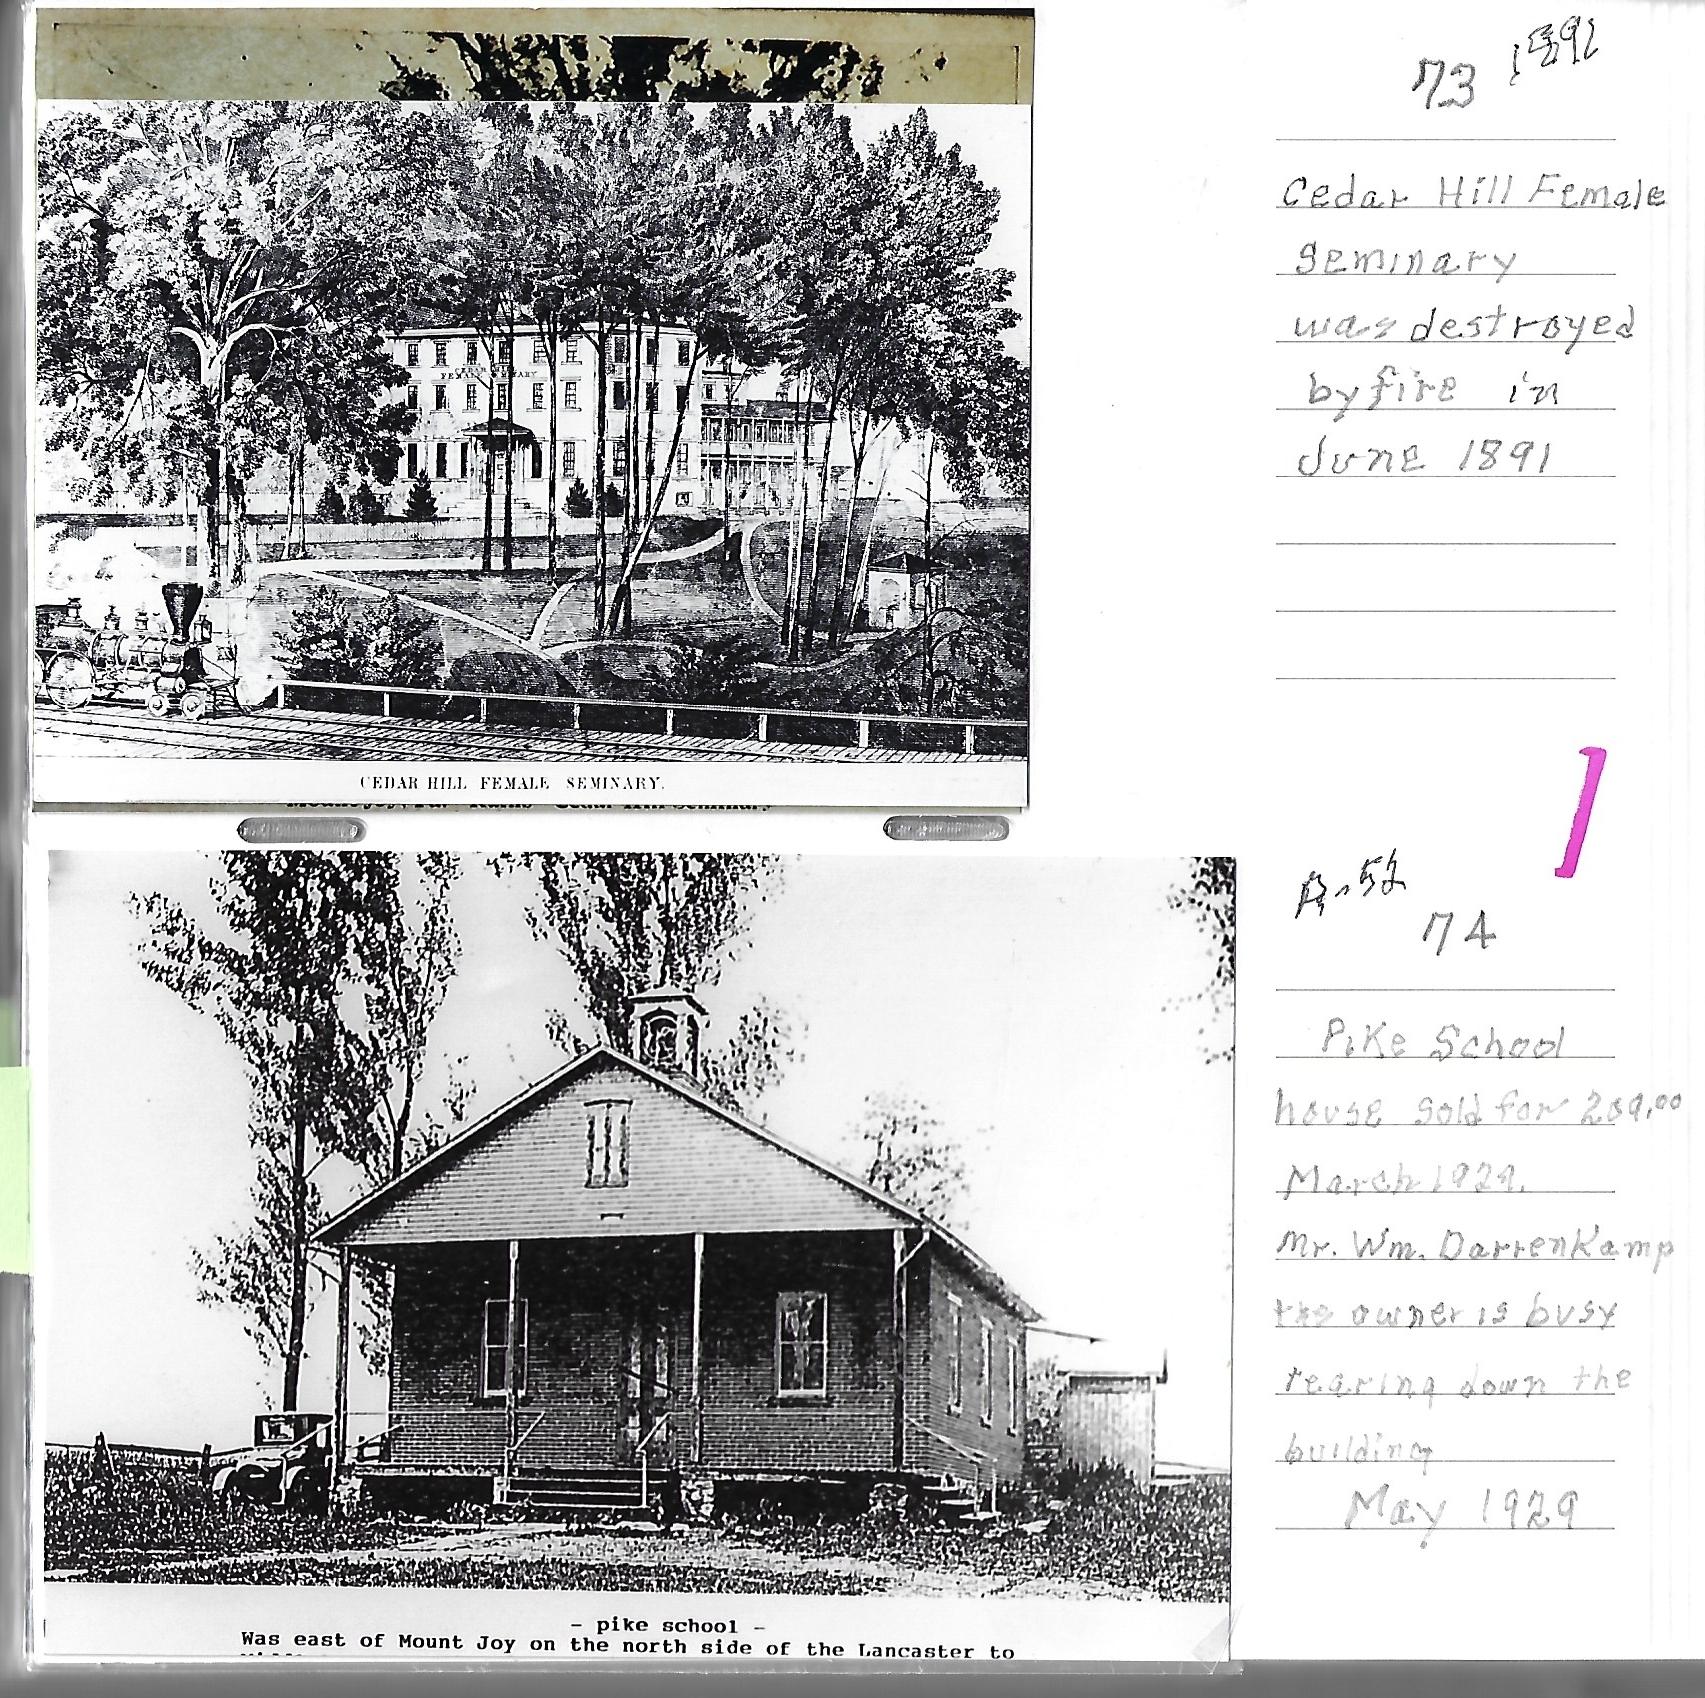 73 1891
Cedar Hill Female
Seminary
was destroyed
by fire in
June 1891
CEDAR HILL
FEMALE SEMINARY
CEDAR HILL FEMALE SEMINARY.
74
Pike School
house sold for
March 1929.
Mr. Wm. Darrenkamp
the owner is busy
tearing down the
building
May 1929
- pike school -
Was east of Mount Joy on the north side of the Lancaster to